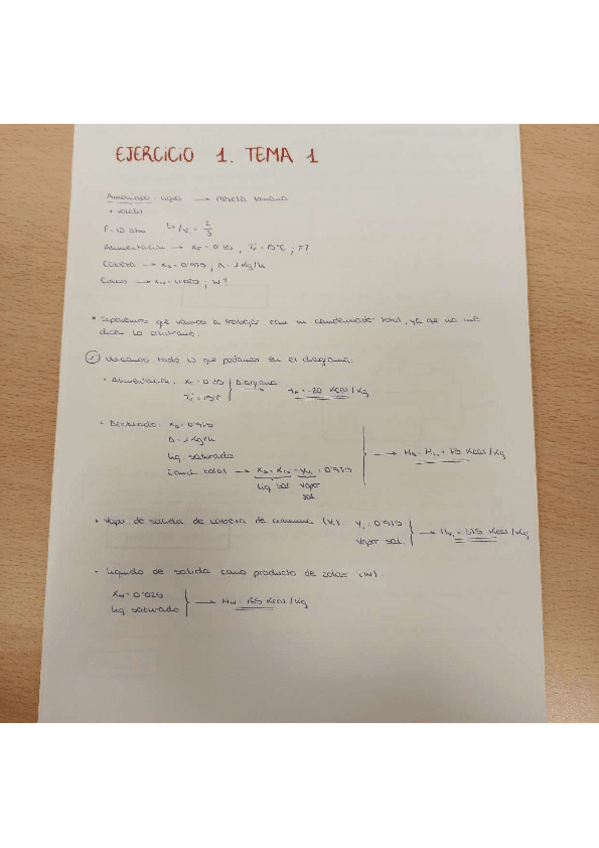 EJERCICIO 1. TEMA 1
Amoniaco-agua → mezcla binaria
+ volátil
P=10 atm L₀/V₁ = 2/3
Alimentación → x_F = 0'35, T_F = 15°C; F?
Cabeza → x_D = 0'975, D = 1 Kg/h
Colas → x_W = 0'025; W?
* Suponemos que vamos a trabajar con un condensador total, ya que no me
dicen lo contrario.
① Ubicamos todo lo que podamos en el diagrama:
• Alimentación: x_F = 0'35 } Diagrama
T_F = 15°C → H_F = -20 Kcal/Kg
• Destilado: x_D = 0'975
D = 1 Kg/h
líq. saturado → H_D = H_L₀ = 75 Kcal/Kg
Cond. total → x_D = x_L₀ = y_V₁ = 0'975
líq. sat. vapor
sat.
• Vapor de salida de cabeza de columna (V₁): y₁ = 0'975 } → H_V₁ = 375 Kcal/Kg
vapor sat.
• Líquido de salida como producto de colas (W):
x_W = 0'025
líq. saturado } → H_W = 155 Kcal/Kg